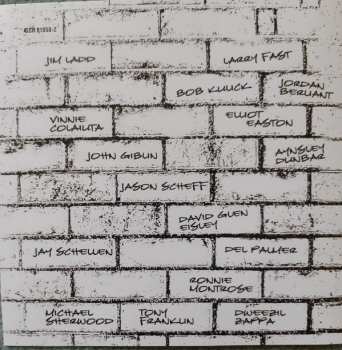 JIM LADD
LARRY FAST
BOB KULICK
JORDAN
BERLIANT
VINNIE
COLAIUTA
ELLIOT
EASTON
JOHN GIBLIN
AYNSLEY
DUNBAR
JASON SCHEFF
DAVID GLEN
EISLEY
JAY SCHELLEN
DEL PALMER
RONNIE
MONTROSE
MICHAEL
SHERWOOD
TONY
FRANKLIN
DWEEZIL
ZAPPA